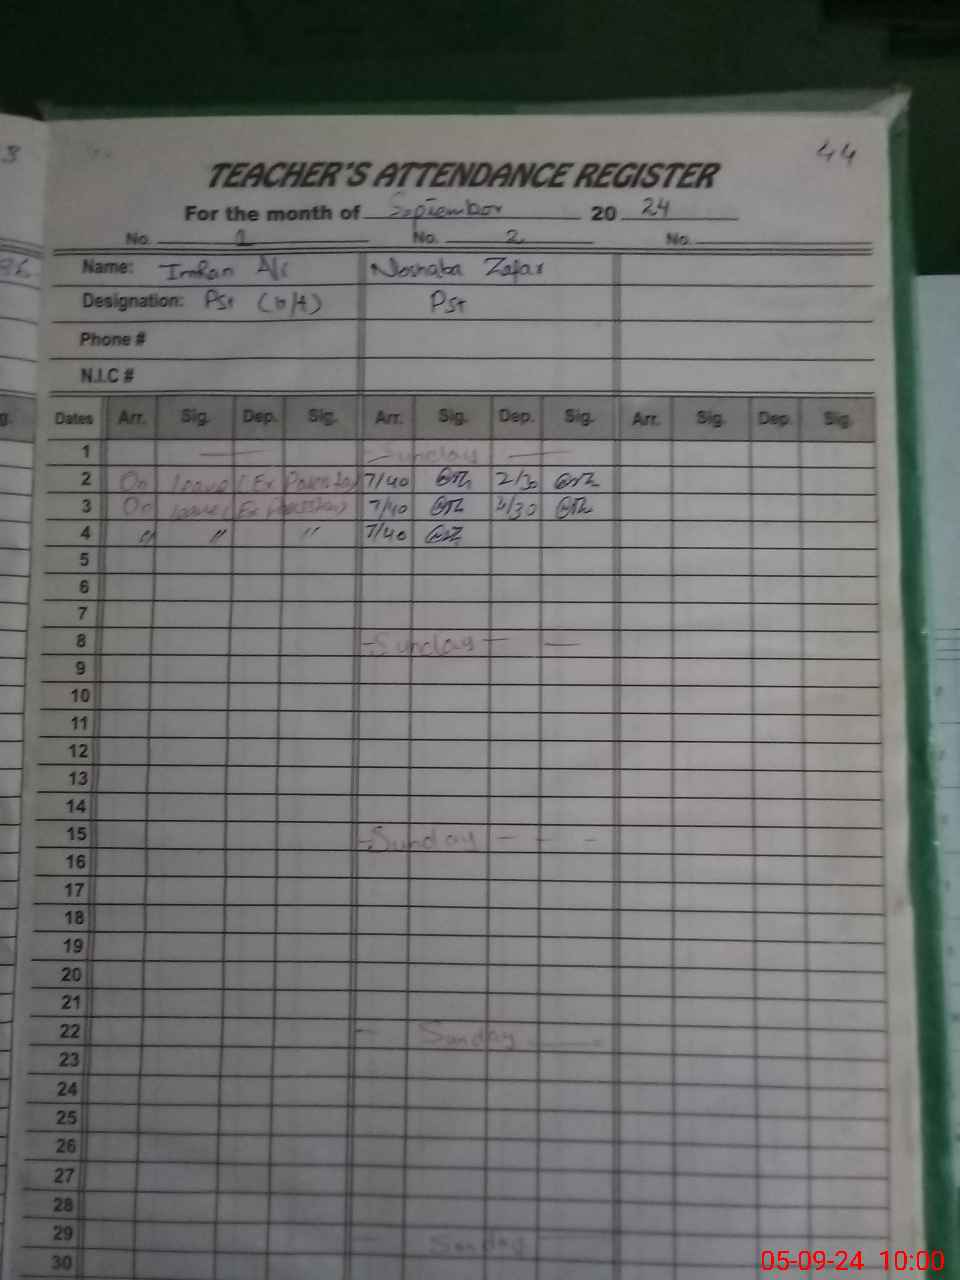 44
TEACHER'S ATTENDANCE REGISTER
For the month of September 2024
No. 1 No. 2 No.
Name: Imran A/c Noshaba Zafar
Designation: Pst (b/t) Pst
Phone #
N.I.C #
Dates Arr. Sig. Dep. Sig. Arr. Sig. Dep. Sig. Arr. Sig. Dep. Sig.
1 Sunday
2 On leave (Ex 7/40 2/30
3 On leave (Ex 7/40 2/30
4 〃 〃 〃 7/40
5
6
7
8 Sunday
9
10
11
12
13
14
15 Sunday
16
17
18
19
20
21
22 Sunday
23
24
25
26
27
28
29 Sunday
30
05-09-24 10:00